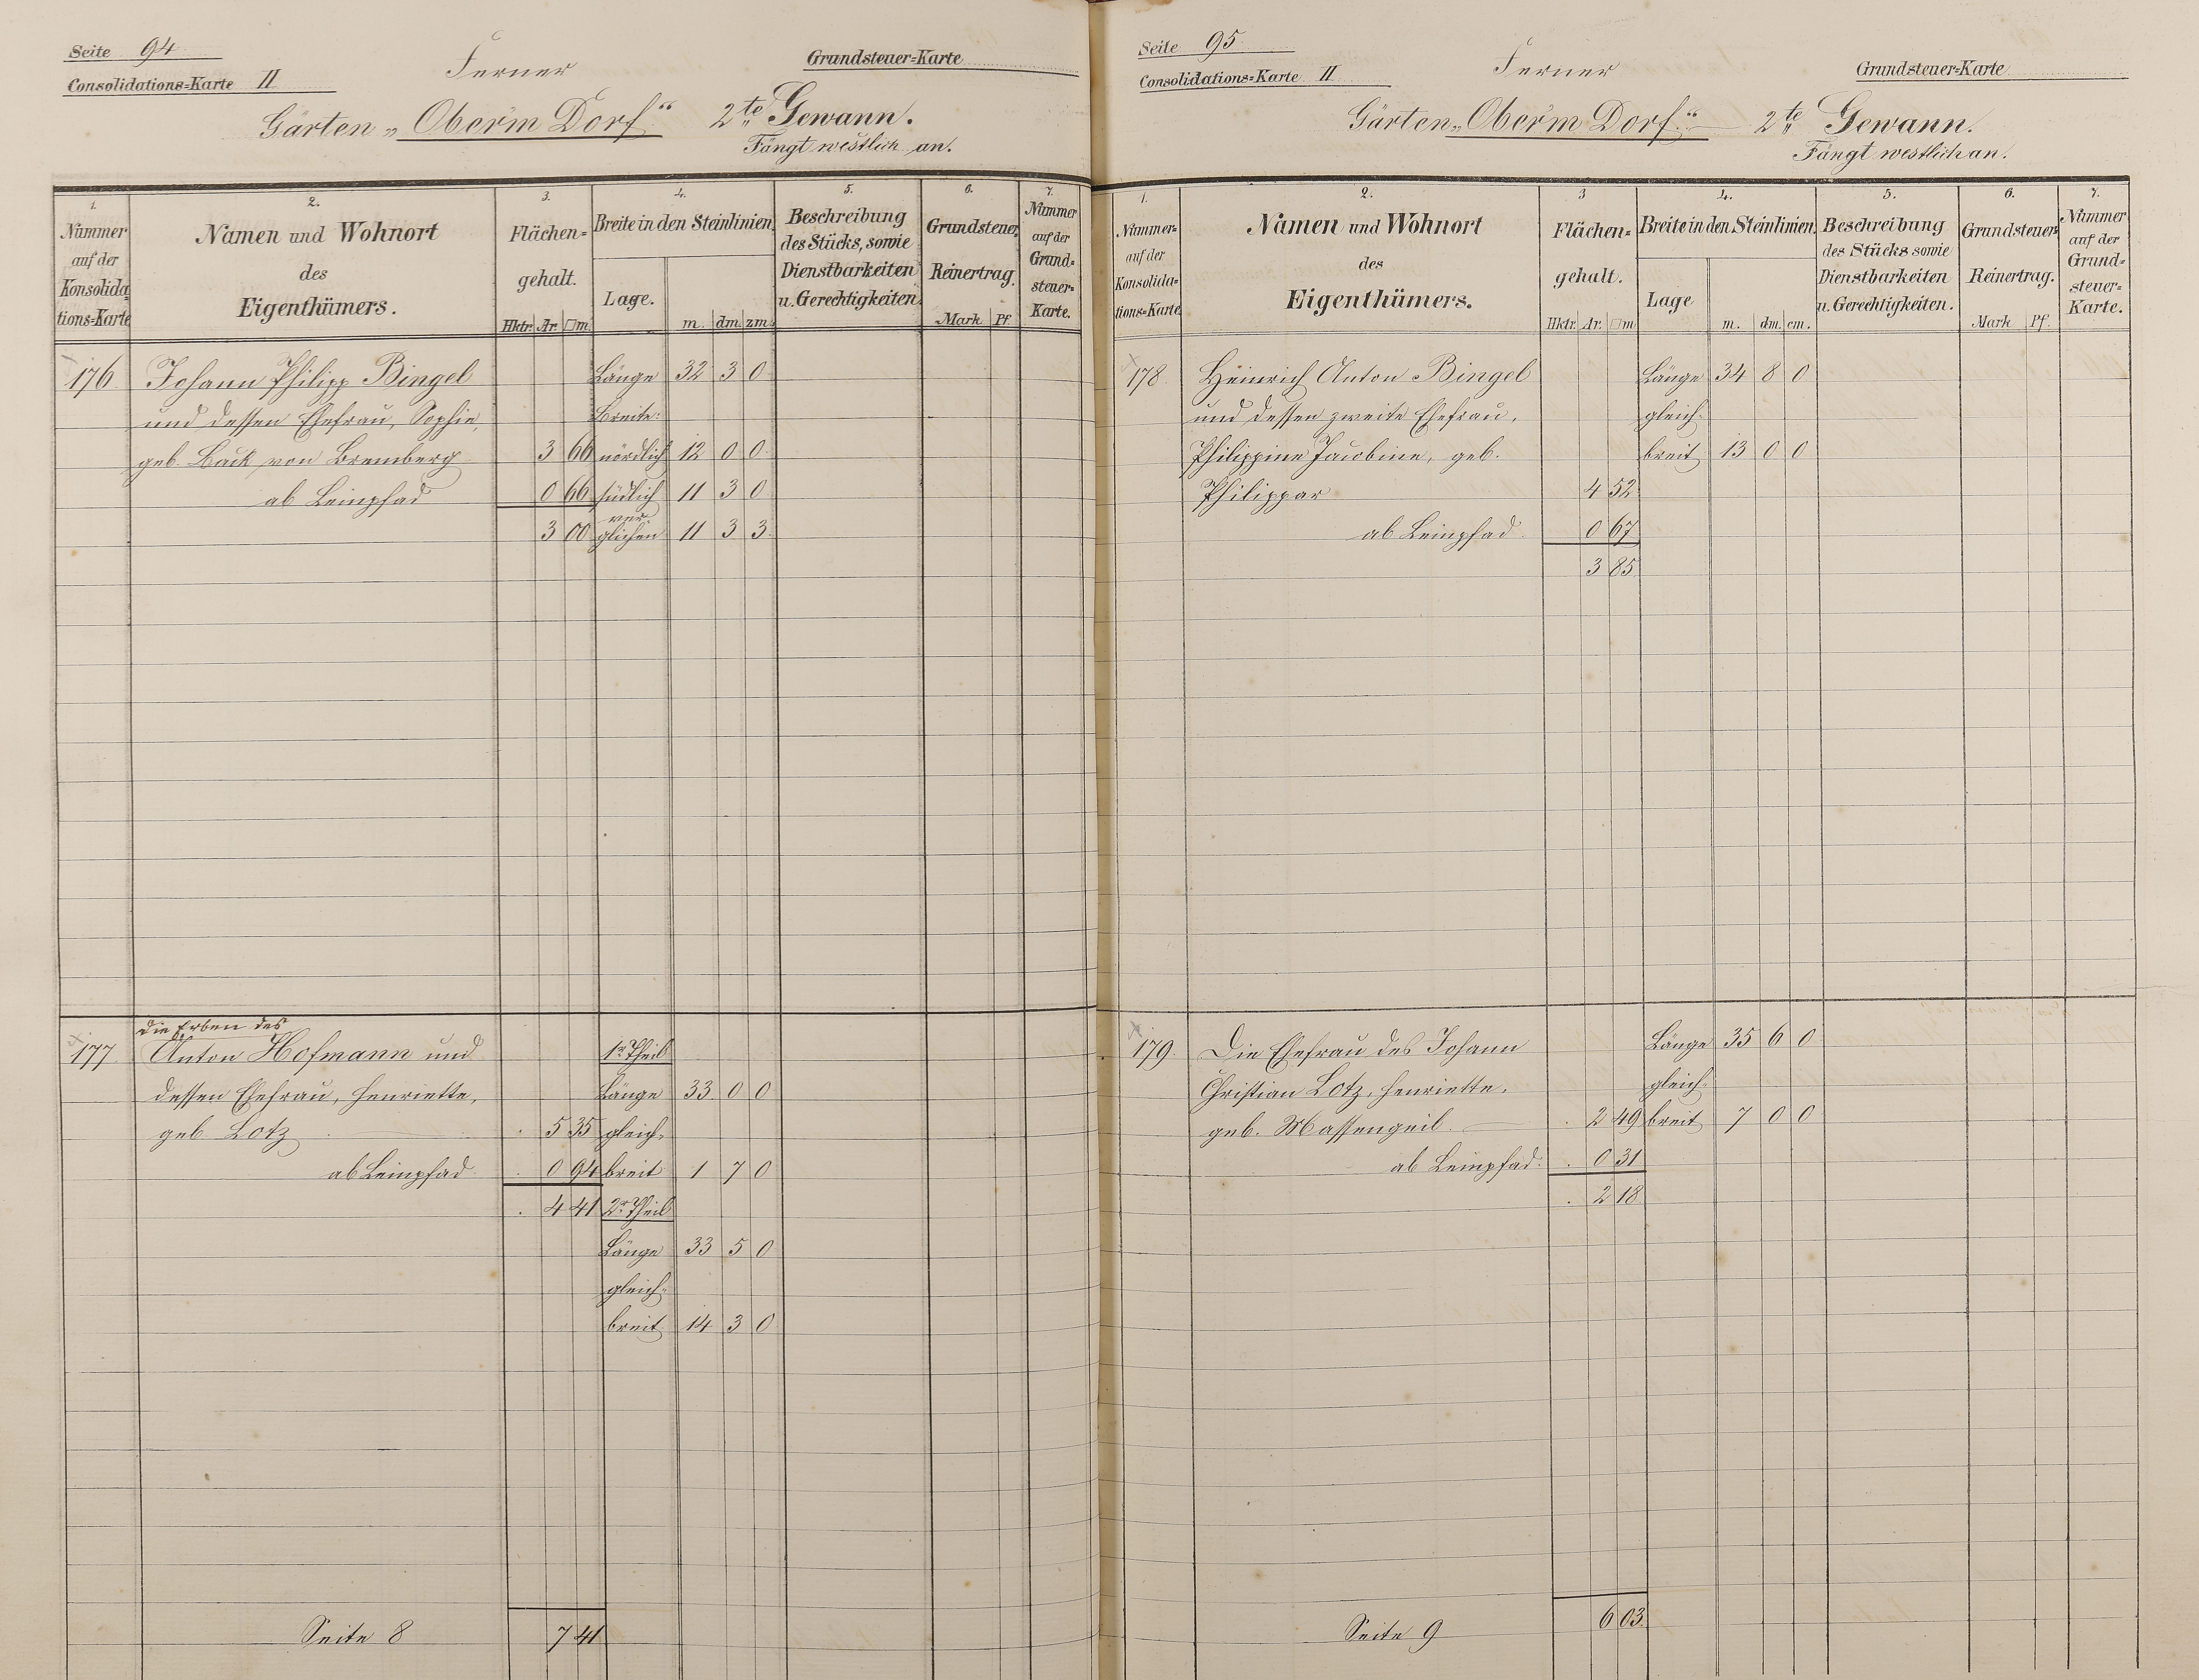 Seite 94
Consolidations=Karte II
Ferner
Grundsteuer=Karte
Gärten „Ober'm Dorf" 2te Gewann.
Fängt westlich an.
1. 2. 3. 4. 5. 6. 7.
Nummer auf der Konsolidations=Karte
Namen und Wohnort des Eigenthümers.
Flächen=gehalt.
Hktr. Ar. □m
Breite in den Steinlinien
Lage. m. dm. zm.
Beschreibung des Stücks, sowie Dienstbarkeiten u. Gerechtigkeiten.
Grundsteuer Reinertrag.
Mark Pf.
Nummer auf der Grund=steuer=Karte.
176. Johann Philipp Bingel Länge 32 3 0
und dessen Ehefrau, Sophie, Breite:
geb. Back von Bremberg 3 66 nördlich 12 0 0
ab Leinpfad 0 66 südlich 11 3 0
3 00 verglichen 11 3 3
die Erben des
177. Anton Hofmann und 1r Theil
dessen Ehefrau, Henriette, Länge 33 0 0
geb. Lotz 5 35 gleich=
ab Leinpfad 0 94 breit 1 7 0
4 41 2r Theil
Länge 33 5 0
gleich=
breit 14 3 0
Seite 8 7 41
Seite 95
Consolidations=Karte II
Ferner
Grundsteuer=Karte
Gärten „Ober'm Dorf." 2te Gewann.
Fängt westlich an.
1. 2. 3 4. 5. 6. 7.
Nummer auf der Konsolida=tions=Karte
Namen und Wohnort des Eigenthümers.
Flächen=gehalt.
Hktr. Ar. □m
Breite in den Steinlinien
Lage m. dm. cm.
Beschreibung des Stücks sowie Dienstbarkeiten u. Gerechtigkeiten.
Grundsteuer= Reinertrag.
Mark Pf.
Nummer auf der Grund=steuer=Karte.
178. Heinrich Anton Bingel Länge 34 8 0
und dessen zweite Ehefrau, gleich=
Philippine Jacobine, geb. breit 13 0 0
Philippar 4 52
ab Leinpfad. 0 67
3 85
179. Die Ehefrau des Johann Länge 35 6 0
Christian Lotz, Henriette, gleich=
geb. Massengeil. 2 49 breit 7 0 0
ab Leinpfad. 0 31
2 18
Seite 9 6 03